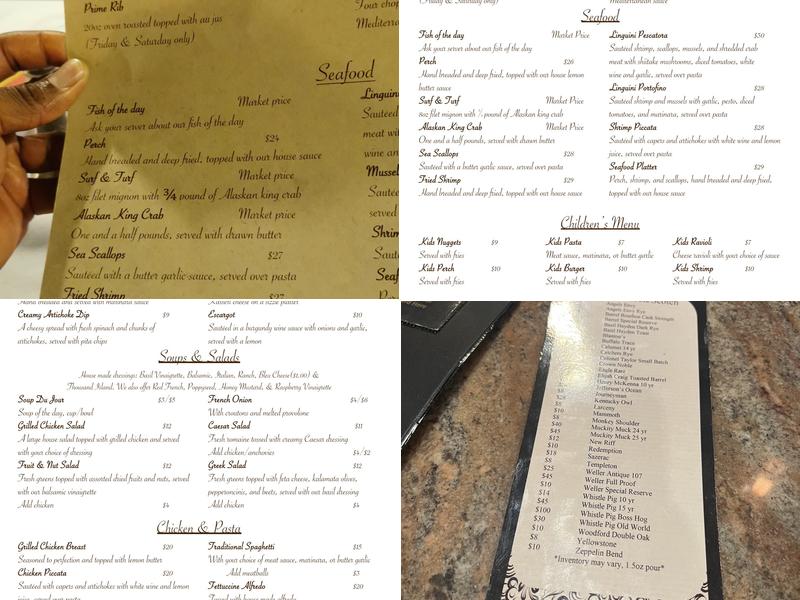 Prime Rib
20oz oven roasted topped with au jus
(Friday & Saturday only)
Four chop
Mediterra
Seafood
Fish of the day Market price
Ask your sever about our fish of the day
Perch $24
Hand breaded and deep fried, topped with our house sauce
Surf & Turf Market price
8oz filet mignon with 3/4 pound of Alaskan king crab
Alaskan King Crab Market price
One and a half pounds, served with drawn butter
Sea Scallops $27
Sauteéd with a butter garlic sauce, served over pasta
Fried Shrimp $27
Linguin
Sauteéd
meat wit
wine an
Mussel
Sauteéd
served
Shrim
Sauteéd
Seaf
(Friday & Saturday only)
Mediterranean sauce
Seafood
Fish of the day Market Price
Ask your sever about our fish of the day
Perch $26
Hand breaded and deep fried, topped with our house lemon
butter sauce
Surf & Turf Market Price
8oz filet mignon with ½ pound of Alaskan king crab
Alaskan King Crab Market Price
One and a half pounds, served with drawn butter
Sea Scallops $28
Sauteéd with a butter garlic sauce, served over pasta
Fried Shrimp $29
Hand breaded and deep fried, topped with our house
Linguini Pescatora $30
Sauteéd shrimp, scallops, mussels, and shredded crab
meat with shitake mushrooms, diced tomatoes, white
wine and garlic, served over pasta
Linguini Portofino $28
Sauteéd shrimp and mussels with garlic, pesto, diced
tomatoes, and marinara, served over pasta
Shrimp Piccata $28
Sauteéd with capers and artichokes with white wine and lemon
juice, served over pasta
Seafood Platter $29
Perch, shrimp, and scallops, hand breaded and deep fried,
topped with our house sauce
Children's Menu
Kids Nuggets $9
Served with fries
Kids Perch $10
Served with fries
Kids Pasta $7
Meat sauce, marinara, or butter garlic
Kids Burger $10
Served with fries
Kids Ravioli $7
Cheese ravioli with your choice of sauce
Kids Shrimp $10
Served with fries
Hand breaded and served with marinara sauce
Creamy Artichoke Dip $9
A cheesy spread with fresh spinach and chunks of
artichokes, served with pita chips
Kasseri cheese on a sizzle platter
Escargot $10
Sauteéd in a burgundy wine sauce with onions and garlic,
served with a lemon
Soups & Salads
House made dressings: Basil Vinaigrette, Balsamic, Italian, Ranch, Bleu Cheese($1.00) &
Thousand Island. We also offer Red French, Poppyseed, Honey Mustard, & Raspberry Vinaigrette
Soup Du Jour $3/$5
Soup of the day, cup/bowl
Grilled Chicken Salad $12
A large house salad topped with grilled chicken and served
with your choice of dressing
Fruit & Nut Salad $12
Fresh greens topped with assorted dried fruits and nuts, served
with our balsamic vinaigrette
Add chicken $4
French Onion $4/$6
With croutons and melted provolone
Caesar Salad $11
Fresh romaine tossed with creamy Caesar dressing
Add chicken/anchovies $4/$2
Greek Salad $12
Fresh greens topped with feta cheese, kalamata olives,
pepperoncinis, and beets, served with our basil dressing
Add chicken $4
Chicken & Pasta
Grilled Chicken Breast $20
Seasoned to perfection and topped with lemon butter
Chicken Piccata $20
Sauteéd with capers and artichokes with white wine and lemon
juice, served over pasta
Traditional Spaghetti $15
With your choice of meat sauce, marinara, or butter garlic
Add meatballs $3
Fettuccine Alfredo $20
Tossed with house made alfredo
Scotch
Angels Envy
Angels Envy Rye
Barrel Bourbon Cask Strength
Barrel Special Reserve
Basil Hayden Dark Rye
Basil Hayden Toast
Blanton's
Buffalo Trace
Calumet 14 yr
Catchers Rye
Colonel Taylor Small Batch
Crown Noble
Eagle Rare
Elijah Craig Toasted Barrel
Henry McKenna 10 yr
Jefferson's Ocean
Journeyman
Kentucky Owl
Larceny
Mammoth
Monkey Shoulder
Muckity Muck 24 yr
Muckity Muck 25 yr
New Riff
Redemption
Sazerac
Templeton
Weller Antique 107
Weller Full Proof
Weller Special Reserve
Whistle Pig 10 yr
Whistle Pig 15 yr
Whistle Pig Boss Hog
Whistle Pig Old World
Woodford Double Oak
Yellowstone
Zeppelin Bend
*Inventory may vary, 1.5oz pour*